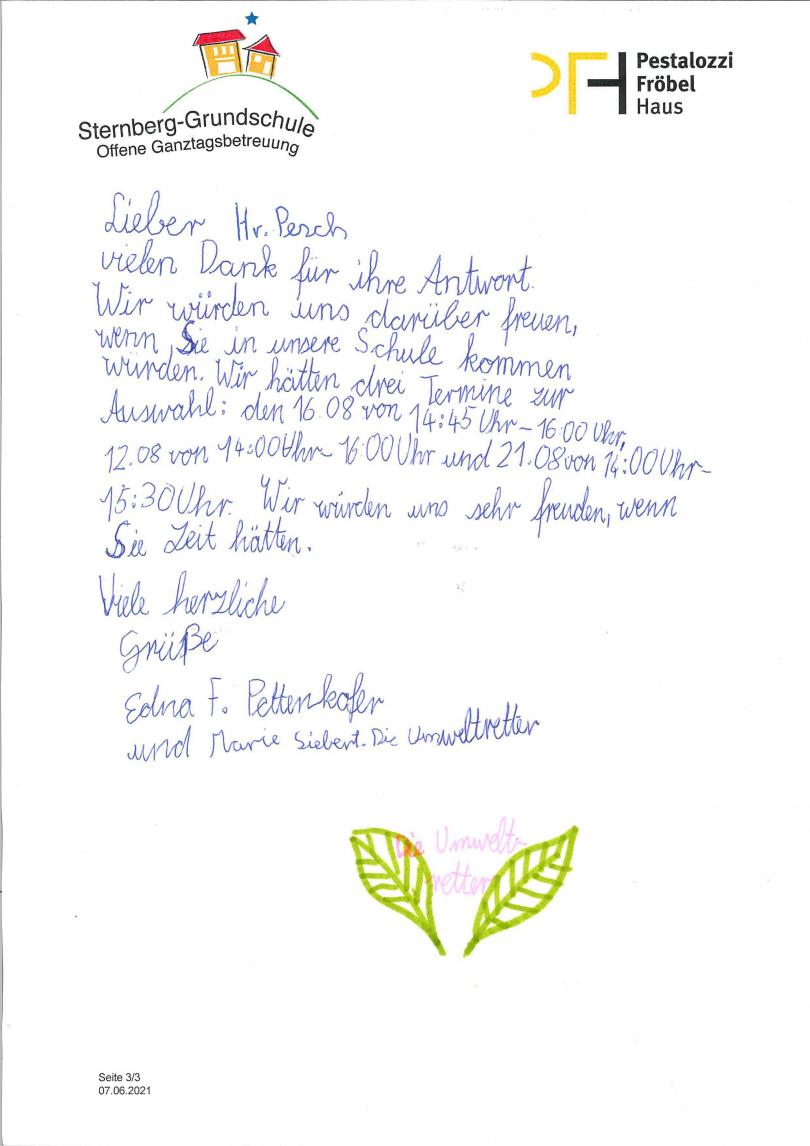 Sternberg-Grundschule
Offene Ganztagsbetreuung
Pestalozzi
Fröbel
Haus
Lieber Hr. Pesch
vielen Dank für ihre Antwort.
Wir würden uns darüber freuen,
wenn Sie in unsere Schule kommen
würden. Wir hätten drei Termine zur
Auswahl: den 16.08 von 14:45 Uhr – 16:00 Uhr,
12.08 von 14:00 Uhr – 16:00 Uhr und 21.08 von 14:00 Uhr –
15:30 Uhr. Wir würden uns sehr freuden, wenn
Sie Zeit hätten.
Viele herzliche
Grüße
Edna F. Pettenkofer
und Marie Siebert. Die Umweltretter
Die Umwelt-
retter
Seite 3/3
07.06.2021